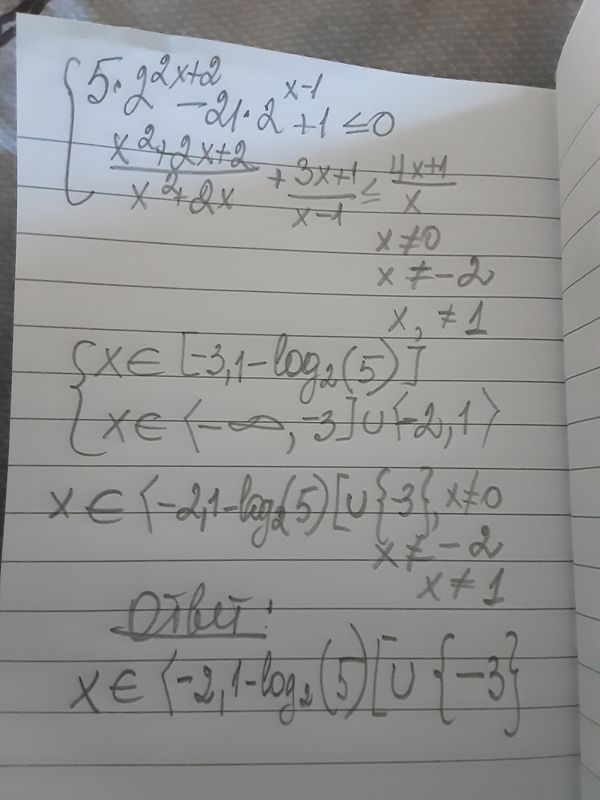 5·2^{2x+2} - 21·2^{x-1} + 1 ≤ 0
\frac{x^2+2x+2}{x^2+2x} + \frac{3x+1}{x-1} ≤ \frac{4x+1}{x}
x ≠ 0
x ≠ -2
x, ≠ 1
{ x ∈ [-3, 1-log₂(5)]
x ∈ ⟨-∞, -3] ∪ ⟨-2, 1⟩
x ∈ ⟨-2, 1-log₂(5)[ ∪ {-3}, x≠0
x ≠ -2
x ≠ 1
Ответ:
x ∈ ⟨-2, 1-log₂(5)[ ∪ {-3}